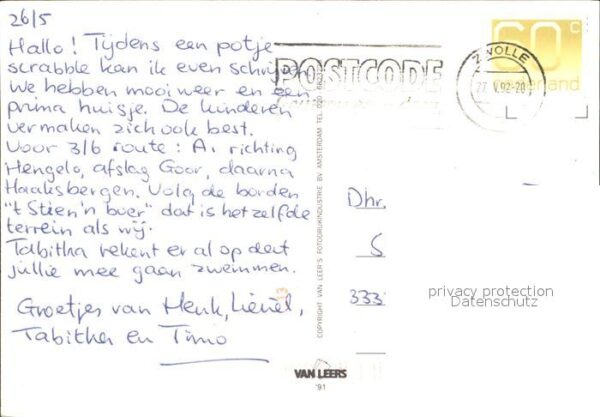 26/5
Hallo! Tijdens een potje
scrabble kan ik even schrijven
we hebben mooi weer en een
prima huisje. De kinderen
vermaken zich ook best.
Voor 3/6 route: A1 richting
Hengelo, afslag Goor, daarna
Haaksbergen. Volg de borden
"'t Stien'n boer" dat is hetzelfde
terrein als wij.
Tabitha rekent er al op dat
jullie mee gaan zwemmen.
Groetjes van Henk,
Tabitha en Timo
60 c
nederland
POSTCODE
ZWOLLE
27 V.92-20
COPYRIGHT VAN LEER'S FOTODRUKINDUSTRIE BV AMSTERDAM TEL. 020
VAN LEERS
'91
Dhr.
S
333
privacy protection
Datenschutz